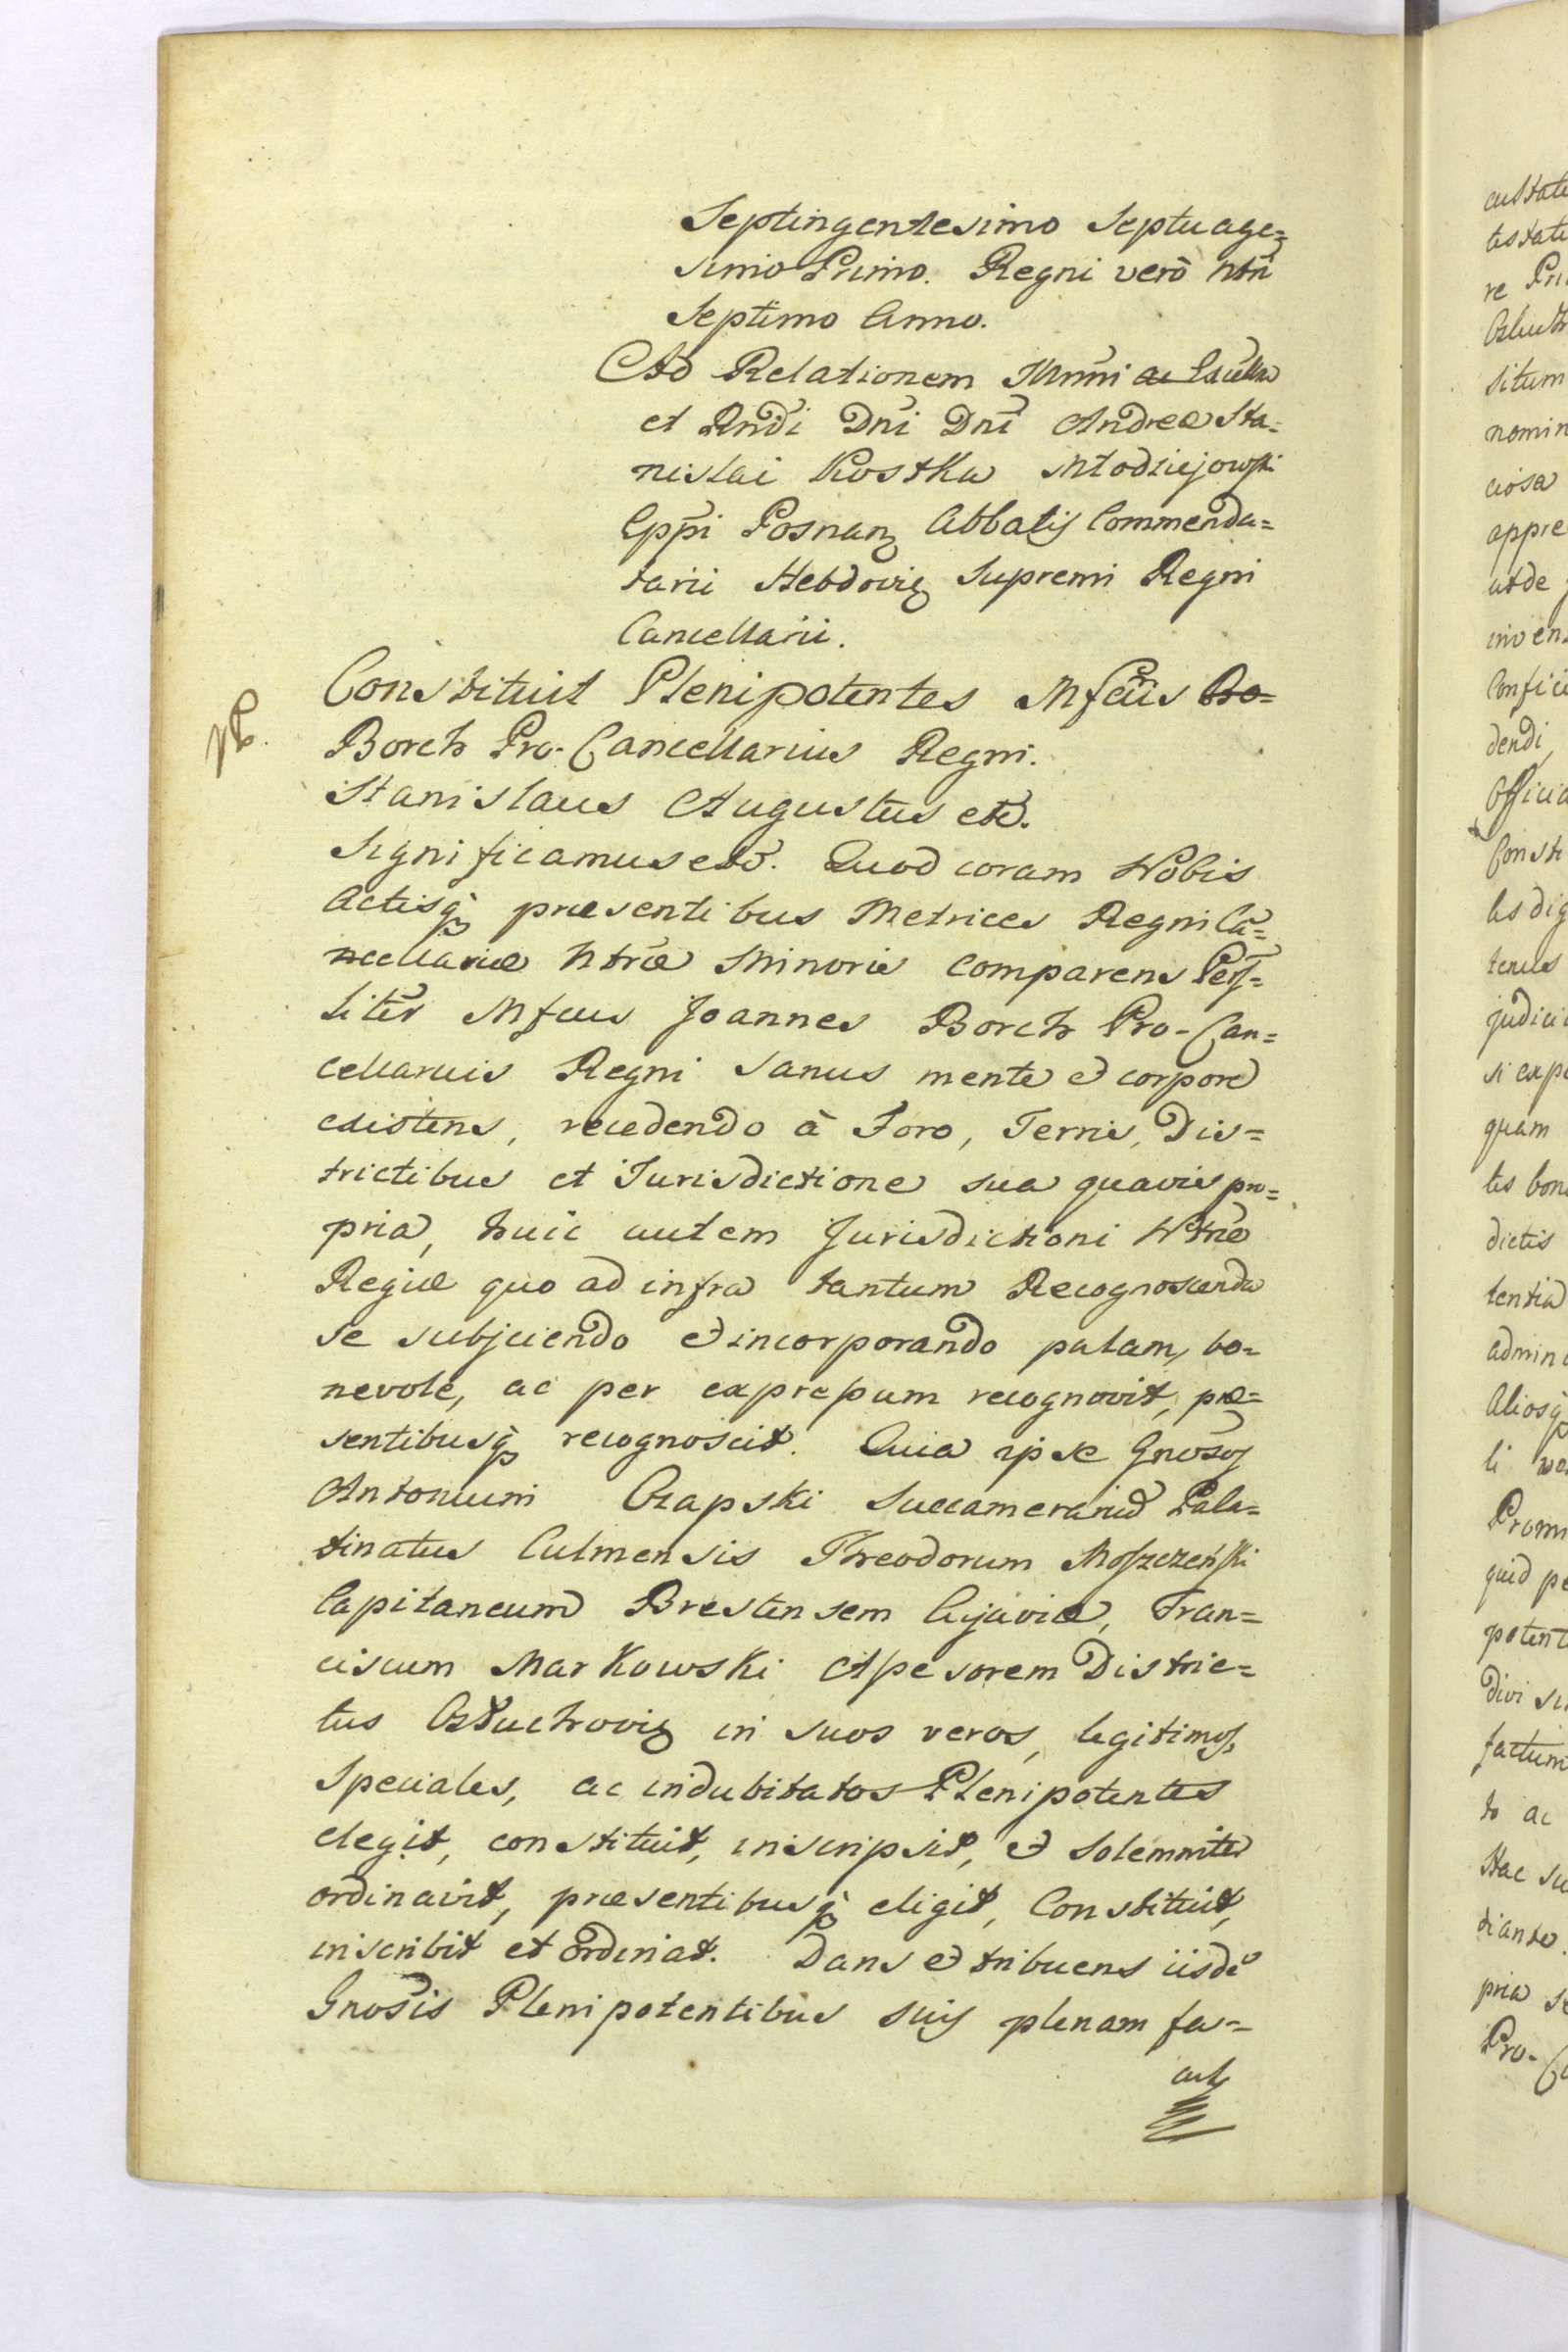 Septingentesimo Septuage=
simo Primo. Regni verò Ntri
Septimo Anno.
Ad Relationem Illmni ac Excellmi
et Rndi Dni Dni Andreæ Sta=
nislai Kostka Młodziejowski
Eppi Posnan Abbatis Commenda=
tarii Hebdovien Supremi Regni
Cancellarii.
Constituit Plenipotentes Mfcus Bo=
Borch Pro-Cancellarius Regni.
Stanislaus Augustus etc.
Significamus etc. Quod coram Nobis
Actisq præsentibus Metrices Regni Cã=
ncellariæ Ntræ Minoris comparens Pers=
liter Mfcus Joannes Borch Pro-Can=
cellarius Regni sanus mente et corpore
existens, recedendo à Foro, Terris, Dis=
trictibus et Jurisdictione sua quavis pro=
pria, huic autem Jurisdictioni Ntræ
Regiæ quo ad infra tantum Recognoscenda
se subjiciendo et incorporando palam, be=
nevole, ac per expressum recognovit, præ=
sentibusq recognoscit. Quia ipse Gnosos
Antonium Czapski Succamerariũ Pala=
tinatus Culmensis Theodorum Moszczeński
Capitaneum Brestensem Cujaviæ, Fran=
ciscum Markowski Assessorem Distric=
tus Człuchovien in suos veros, legitimos,
Speciales, ac indubitatos Plenipotentes
elegit, constituit, inscripsit, et solemniter
ordinavit, præsentibusq eligit, Constituit,
inscribit et ordinat. Dans et tribuens iisdẽ
Gnosis Plenipotentibus suis plenam fa=
cult
custate
testate
re Pri
Człuch
situm
nomin
ciosa
appre
unde
inven
Confici
dendi,
Officia
Consti
les dig
tenus
judici
si expe
quam
tes bon
dictis
tentia
admin
Aliosq
li
Promi
quid pe
potent
divi su
factum
to ac
Hac su
tiante.
pria s
Pro-C